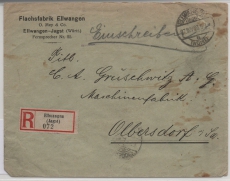 Flachsfabrik Ellwangen
O. May & Co.
Ellwangen-Jagst (Württ)
Fernsprecher Nr. 80.
Einschreiben
Titl.
C. A. Gruschwitz A. G.
Maschinenfabrik
Olbersdorf i. Sa
R
Ellwangen
(Jagst)
972